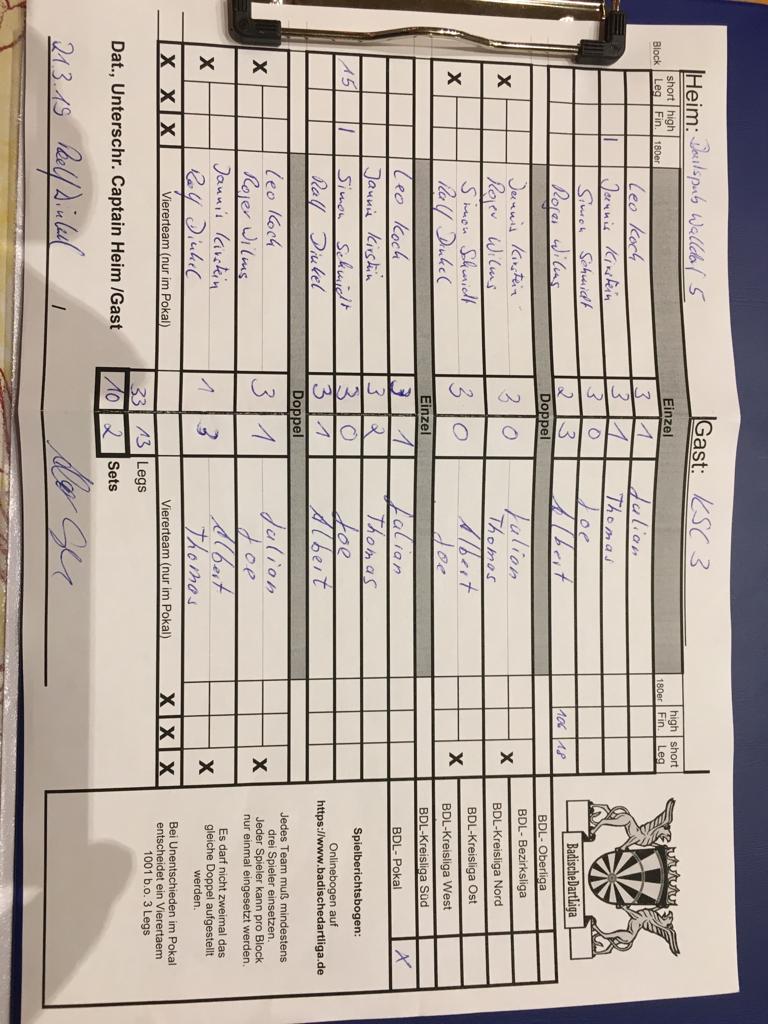 Heim: Dartspub Walldorf 5 Gast: KSC 3
Block short Leg high Fin. 180er Einzel 180er high Fin. short Leg
Leo Koch 3 1 Julian
1 Jannis Kirstein 3 1 Thomas
Simon Schmidt 3 0 Joe
Roger Wilms 2 3 Albert 106 18
Doppel
X Jannis Kirstein Roger Wilms 3 0 Julian Thomas X
X Simon Schmidt Ralf Dinkel 3 0 Albert Joe X
Einzel
Leo Koch 3 1 Julian
Jannis Kirstein 3 2 Thomas
15 1 Simon Schmidt 3 0 Joe
Ralf Dinkel 3 1 Albert
Doppel
X Leo Koch Roger Wilms 3 1 Julian Joe X
X Jannis Kirstein Ralf Dinkel 1 3 Albert Thomas X
X X X Viererteam (nur im Pokal) Viererteam (nur im Pokal) X X X
33 13 Legs
10 2 Sets
Dat., Unterschr. Captain Heim /Gast
21.3.19 Ralf Dinkel /
BadischeDartLiga
BDL- Oberliga
BDL- Bezirksliga
BDL-Kreisliga Nord
BDL-Kreisliga Ost
BDL-Kreisliga West
BDL-Kreisliga Süd
BDL- Pokal X
Spielberichtsbogen:
Onlinebogen auf
https://www.badischedartliga.de
Jedes Team muß mindestens
drei Spieler einsetzen.
Jeder Spieler kann pro Block
nur einmal eingesetzt werden.
Es darf nicht zweimal das
gleiche Doppel aufgestellt
werden.
Bei Unentschieden im Pokal
entscheidet ein Vierertaem
1001 b.o. 3 Legs